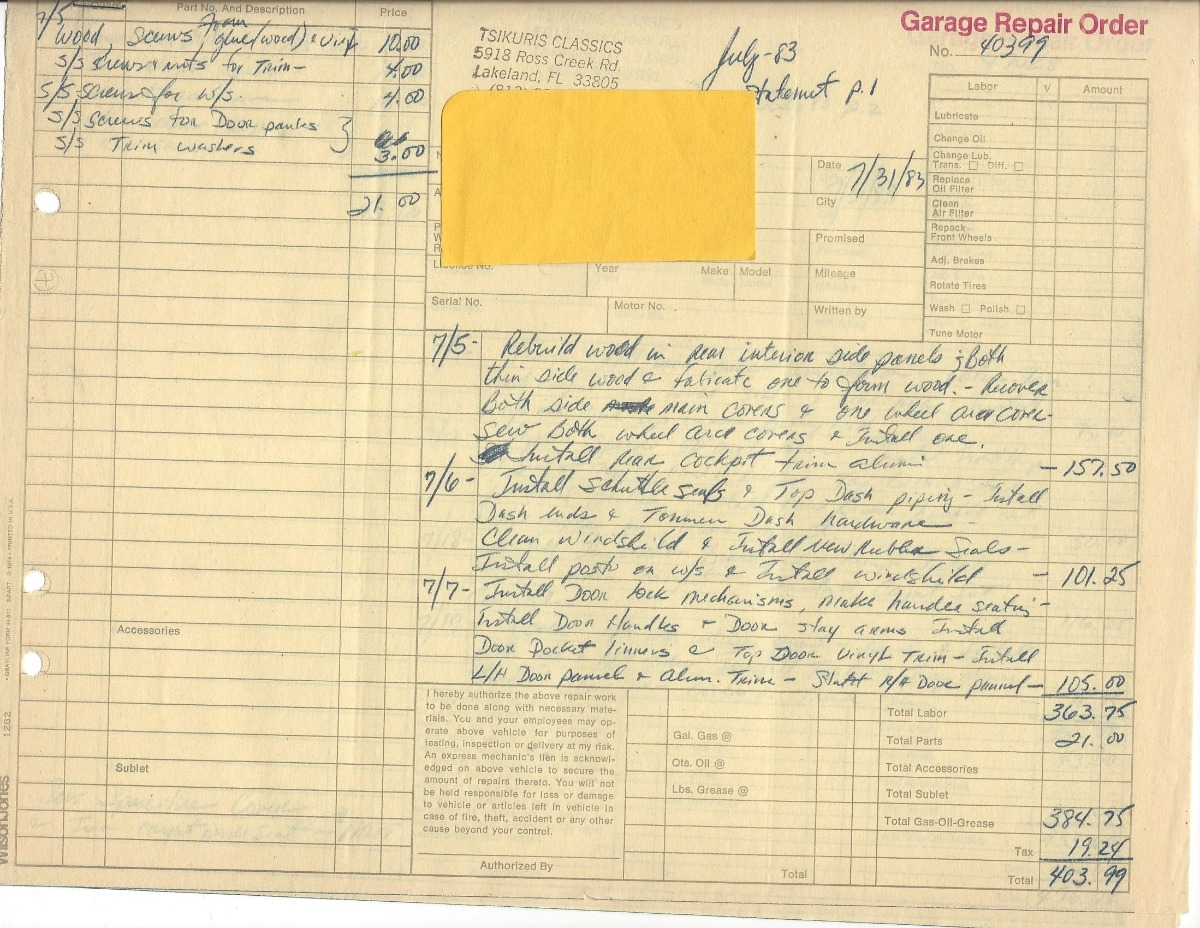 Part No. And Description
Price
7/5
Wood Screws Foam glue (wood) & Vinyl 10.00
S/S skrews & nuts for Trim- 4.00
S/S screws for w/s. 4.00
S/S Screws for Door panles
S/S Trim washers 3.00
21.00
Accessories
Sublet
TSIKURIS CLASSICS
5918 Ross Creek Rd.
Lakeland, FL 33805
July-83
Statemnt p.1
Garage Repair Order
No. 40399
Date 7/31/83
City
Promised
License No.
Year
Make
Model
Mileage
Serial No.
Motor No.
Written by
Labor
√
Amount
Lubricate
Change Oil
Change Lub.
Trans. □ Diff. □
Replace
Oil Filter
Clean
Air Filter
Repack
Front Wheels
Adj. Brakes
Rotate Tires
Wash □ Polish □
Tune Motor
7/5- Rebuild wood in rear interior side panels; Both
thin side wood & fabicate one to form wood. - Recover
Both side main covers & one wheel area cover-
Sew Both wheel area covers & Install one.
Install rear cockpit trim alumi - 157.50
7/6- Install Schuttle seals & Top Dash piping - Install
Dash ends & Tonneu Dash hardware -
Clean windshild & Install new Rubber Seals -
Install posts on w/s & Install windshild - 101.25
7/7- Install Door lock mechanisms, make handle seating-
Install Door Handles & Door stay arms Install
Door Pocket linners & Top Door Vinyl Trim - Install
L/H Door pannel & Alum. Trim - Statrt R/H Door pannel - 105.00
I hereby authorize the above repair work
to be done along with necessary mate-
rials. You and your employees may op-
erate above vehicle for purposes of
testing, inspection or delivery at my risk.
An express mechanic's lien is acknowl-
edged on above vehicle to secure the
amount of repairs thereto. You will not
be held responsible for loss or damage
to vehicle or articles left in vehicle in
case of fire, theft, accident or any other
cause beyond your control.
Authorized By
Gal. Gas @
Qts. Oil @
Lbs. Grease @
Total
Total Labor 363.75
Total Parts 21.00
Total Accessories
Total Sublet
Total Gas-Oil-Grease 384.75
Tax 19.24
Total 403.99
WilsonJones
1282
• GRAYLINE FORM
PRINTED IN U.S.A.